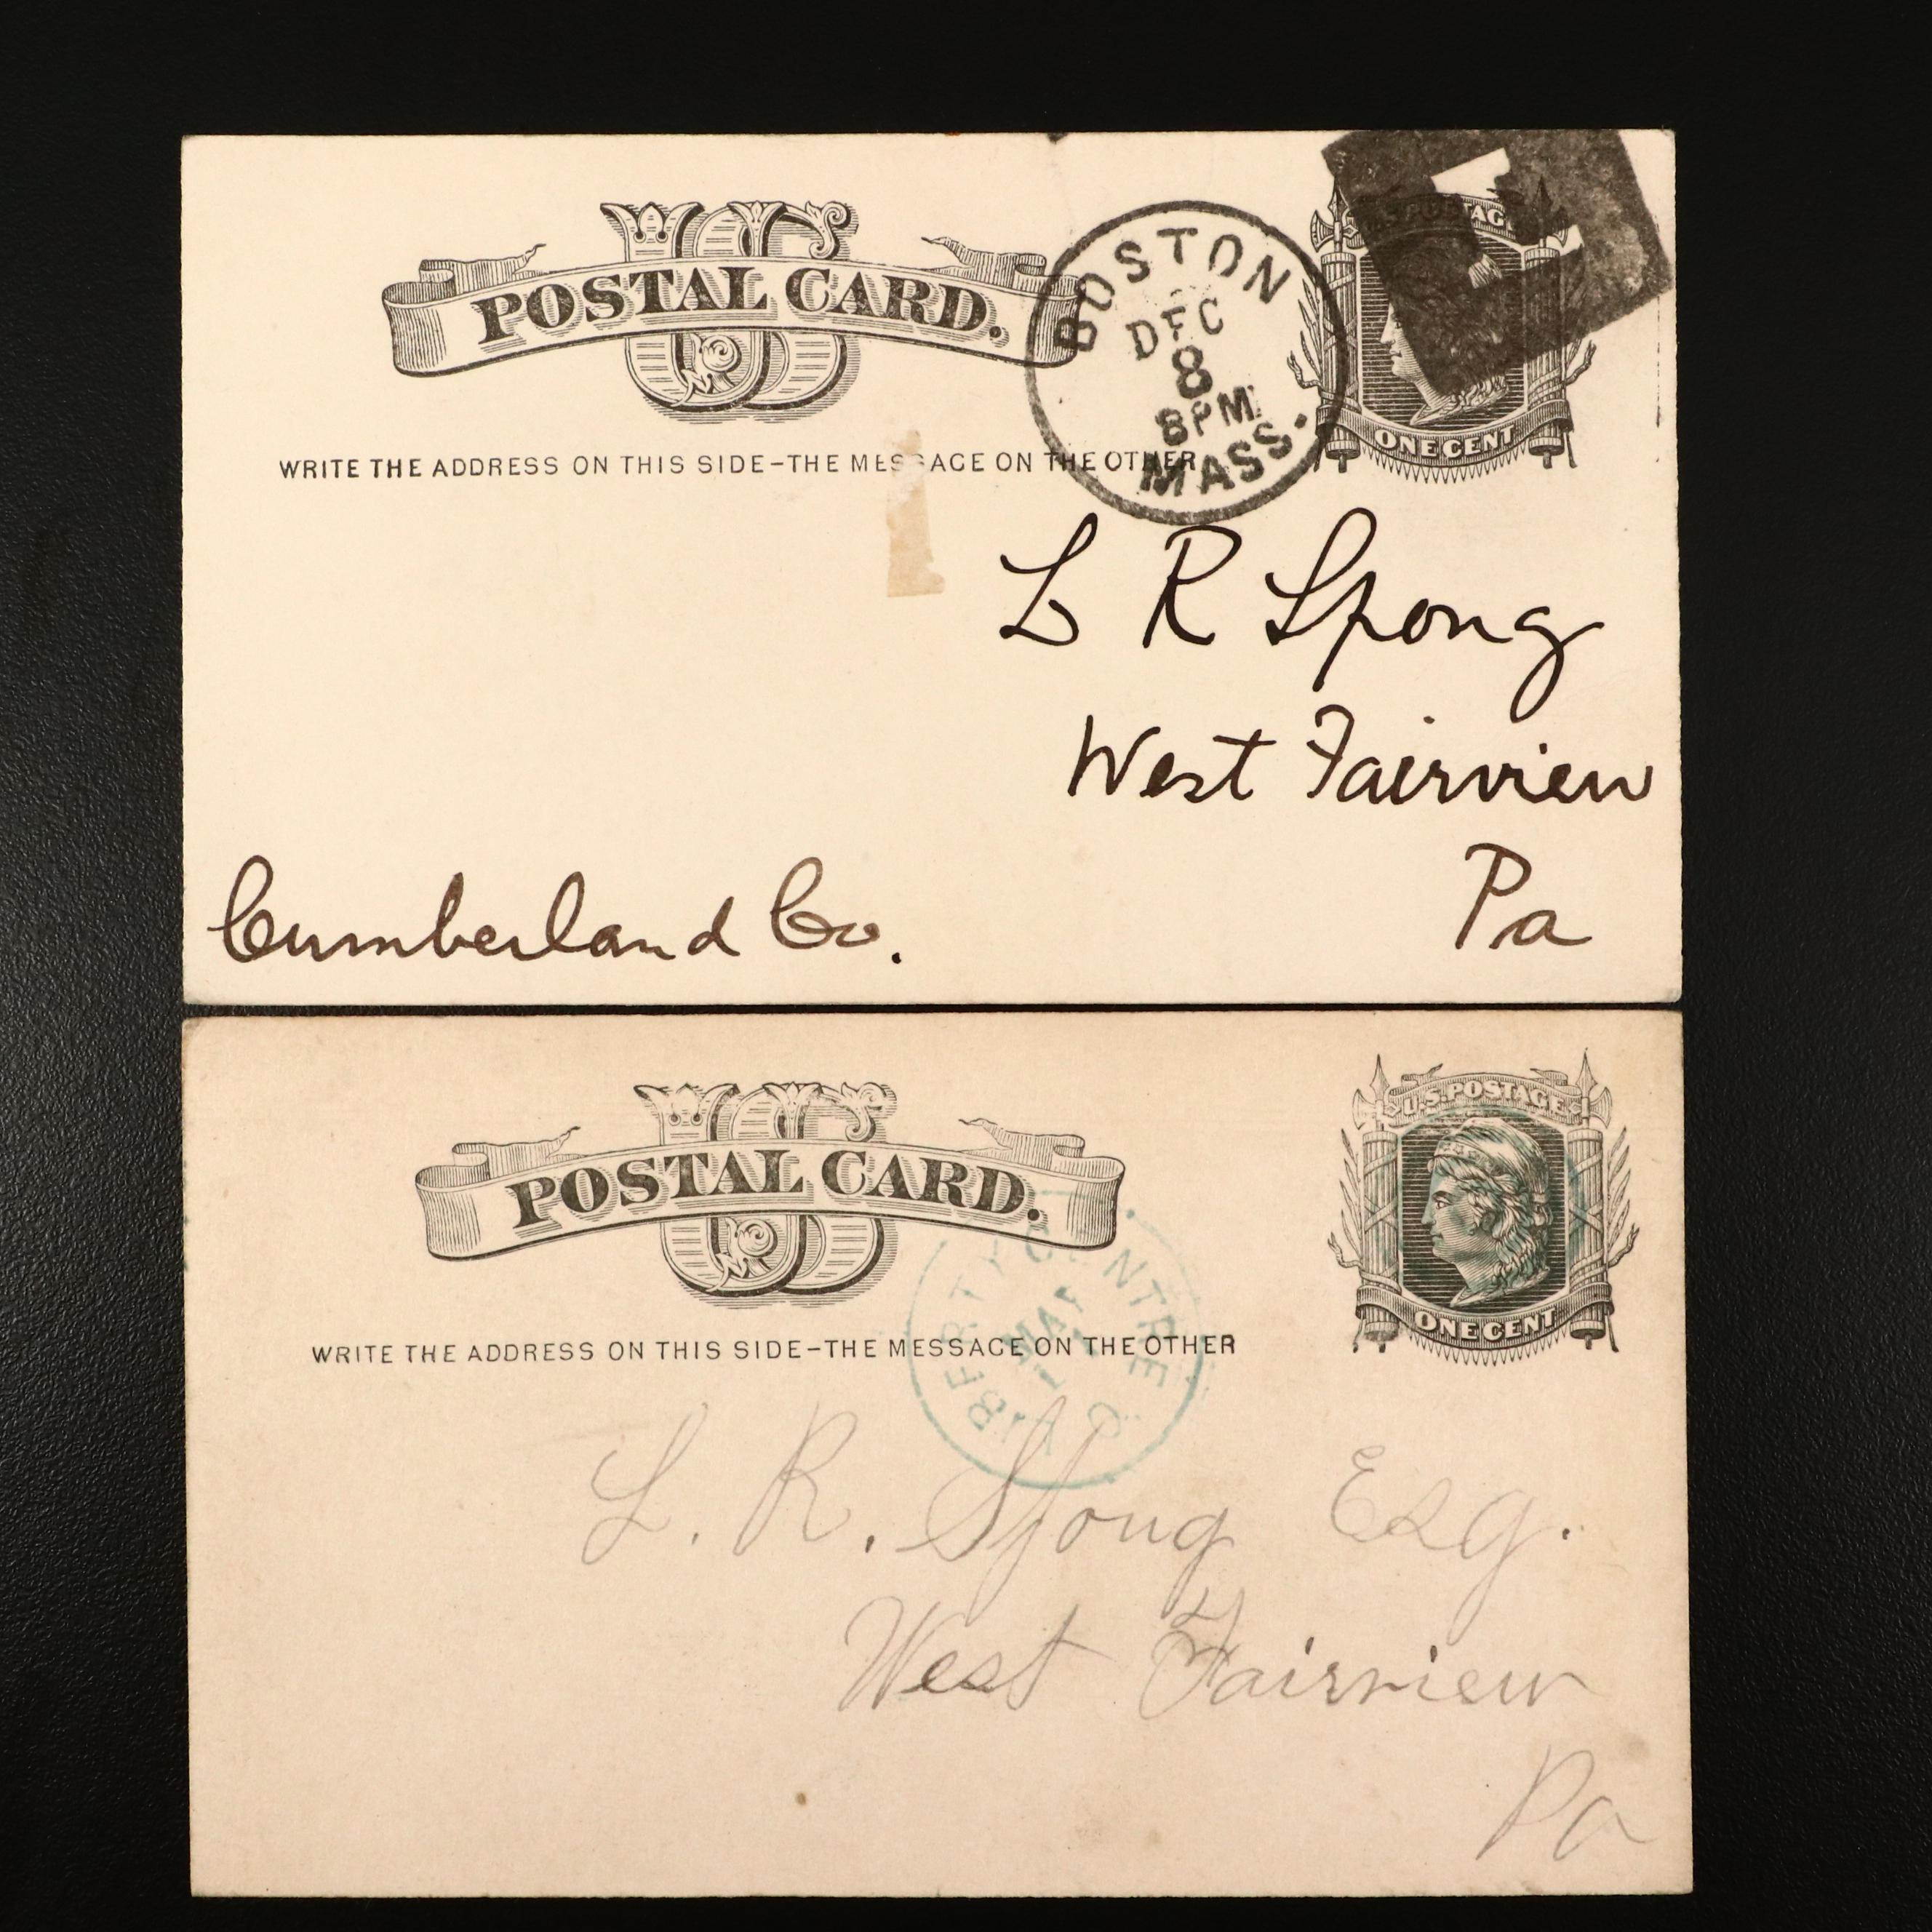 US
POSTAL CARD.
WRITE THE ADDRESS ON THIS SIDE-THE MESSAGE ON THE OTHER
BOSTON
DEC
8
8PM
MASS.
1
U.S. POSTAGE
ONE CENT
L R Spong
West Fairview
Pa
Cumberland Co.
US
POSTAL CARD.
WRITE THE ADDRESS ON THIS SIDE-THE MESSAGE ON THE OTHER
LIBERTY CENTRE O.
MAR
U.S. POSTAGE
ONE CENT
L. R. Spong Esq.
West Fairview
Pa